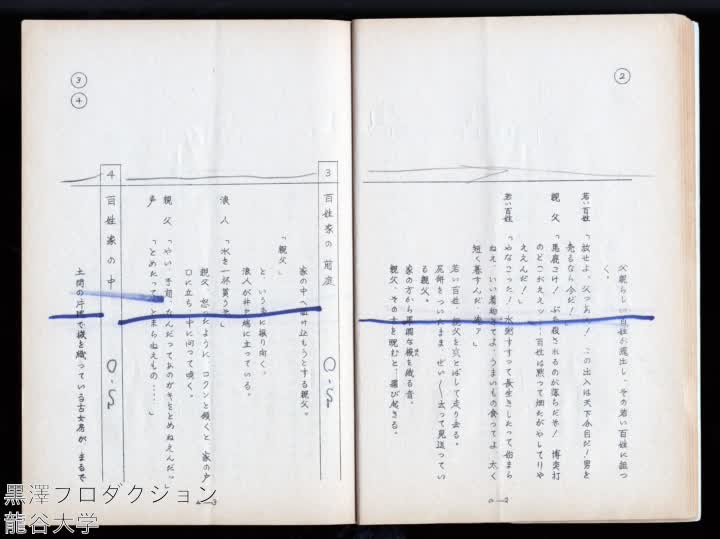 ②
父親らしい百姓が還出し、その若い百姓に組つ
く。
若い百姓「放せよ、父つあん! この出入は天下分目だ!男を
売るなら今だ!
親父「馬鹿こけ! ぶち殺されるのが落ちだぞ! 博奕打
のどこがええッ! 百姓は黙って畑たがやしてりや
ええんだ!」
若い百姓「やなこった! 水粥すすって長生きしたって始まら
ねえ、いい着物きてよ、うまいもの食ってよ、太く
短く暮すんだ、俺ァ」
若い百姓、親父を突とばして走り去る。
尻餅をついたまま、ぜいぜい云って見送ってい
る親父。
家の方から単調な機を織る音。
親父、その方を睨むと、跳び起きる。
a—2
③
④
3 百姓家の前庭 O.S
家の中へ駈け込もうとする親父。
「親父」
という声に振り向く。
浪人が井戸端に立っている。
浪人「水を一杯貰うぞ」
親父、怒ったように、コクンと頷くと、家の戸
口に立ち、中に向って喚く。
親父「やい、手前、なんだってあのガキをとめねえんだッ」
声「とめたってとまらねえもの……」
4 百姓家の中 O.S
土間の片隅で機を織っている古女房が、まるで
a—3
黒澤プロダクション
龍谷大学